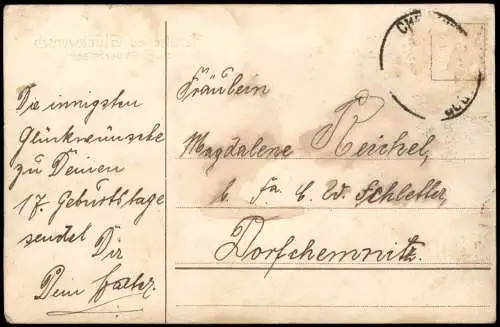 Die innigsten
Glückwünsche
zu Deinen
17. Geburtstage
sendet Dir
Dein Walter.
Fräulein
Magdalene Reichel,
b. Fa. C. W. Schletter,
Dorfchemnitz.